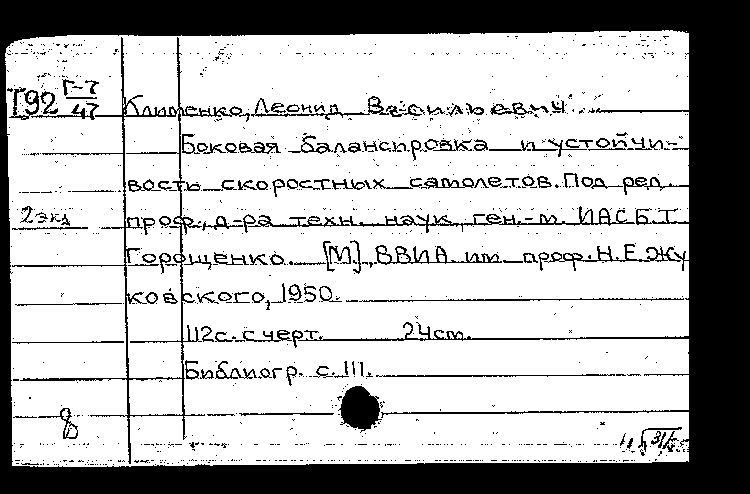 Т92 Г-7/47 Клименко, Леонид Васильевич
Боковая балансировка и устойчи-
вость скоростных самолетов. Под ред.
2 экз
проф., д-ра техн. наук, ген.-м. ИАС Б.Т.
Горощенко. [М.], ВВИА им. проф. Н.Е. Жу
ковского, 1950.
112с. с черт. 24см.
Библиогр. с. 111.
8